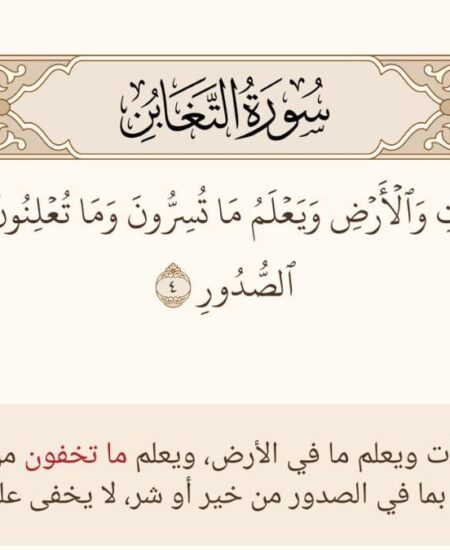 سُورَةُ التَّغَابُنِ
وَٱلۡأَرۡضِ وَيَعۡلَمُ مَا تُسِرُّونَ وَمَا تُعۡلِنُونَ
ٱلصُّدُورِ ٤
ويعلم ما في الأرض، ويعلم ما تخفون
بما في الصدور من خير أو شر، لا يخفى